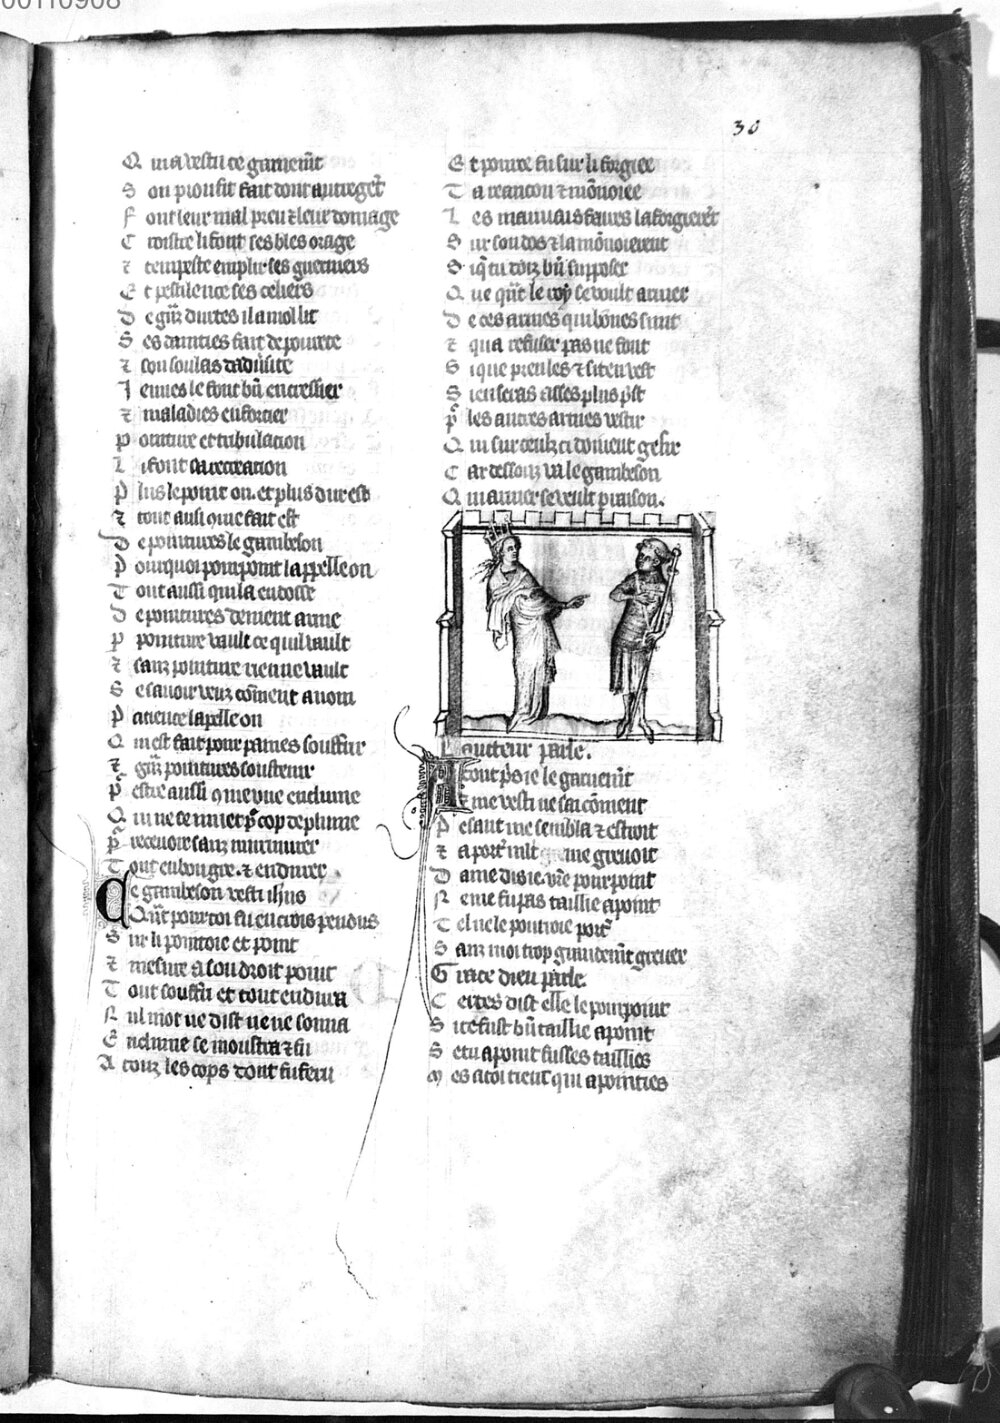 00110908
30
Q ui a vestu ce garnemt
S on proufit fait dont autrege͂t
F ont leur mal preu ⁊ leur domage
C roistre li font ses bles orage
⁊ tempeste emplir ses guerniers
E t pestilence ses celiers
D e gñz durtes il a mol lit
S es dainties fait de povrete
⁊ son soulas dadũsite
J eunes le font bñ encressier
⁊ maladies enforcier
P ointure et tribulacion
L i font sa recreacion
P lus le point on et plus dur est
⁊ tout ausi come fait est
D e pointures le gambeson
P ourquoi pourpoint lappelle on
T out aussi qui la endosse
D e pointures devient arme
P pointure vault ce quil vault
⁊ sanz pointure rienne vault
S e savoir veuz cõment a nom
P acience lapelle on
Q ui est fait pour paines souffrir
⁊ gñz pointures soustenir
P̃ estre aussi ꝯme une enclume
Q ui ne se muet p̃ cop de plume
P̃ recevoir sanz murmurer
T out en bon gre . ⁊ endurer
C e gambeson vesti ihus
Q ũt pour toi fu en crois pendus
S ur li pointoie et point
⁊ mesure a son droit point
T out souffri et tout endura
N ul mot ne dist ne ne sonna
E nclume se moustra ⁊ fu
A touz les cops dont fu feru
E t pource fu sur li forgiee
T a reancon ⁊ mõnoiee
L es mauvais fevres la forgiere͂t
S ur son dos ⁊ la mõnoierent
S i q̃ tu doiz bñ supposer
Q ue qñt le roy se voult armer
D e ces armes qui bõnes sunt
⁊ qua refuser pas ne font
S i que prenles ⁊ si ten vest
S i en seras asses plus p̃st
P̃ les autres armes vestir
Q ui sur ceulz ci doivent gesir
C ar dessouz va le gambeson
Q ui armer se veult p raison.
L aucteur parle.
A tout p̃s ie le garnemt
⁊ me vesti ne sai cõment
P esant me sembla ⁊ estroit
⁊ a port̃ mlt me grevoit
D ame dis ie. vr̃e pourpoint
N e me fu pas taillie a point
T el ne le pourroie port̃
S anz moi trop grandemt grever
G race dieu parle.
C ertes dist elle le pourpoint
S i te fust bñ taillie a point
S e tu a point fusses taillies
M es a toi tient qui apointies